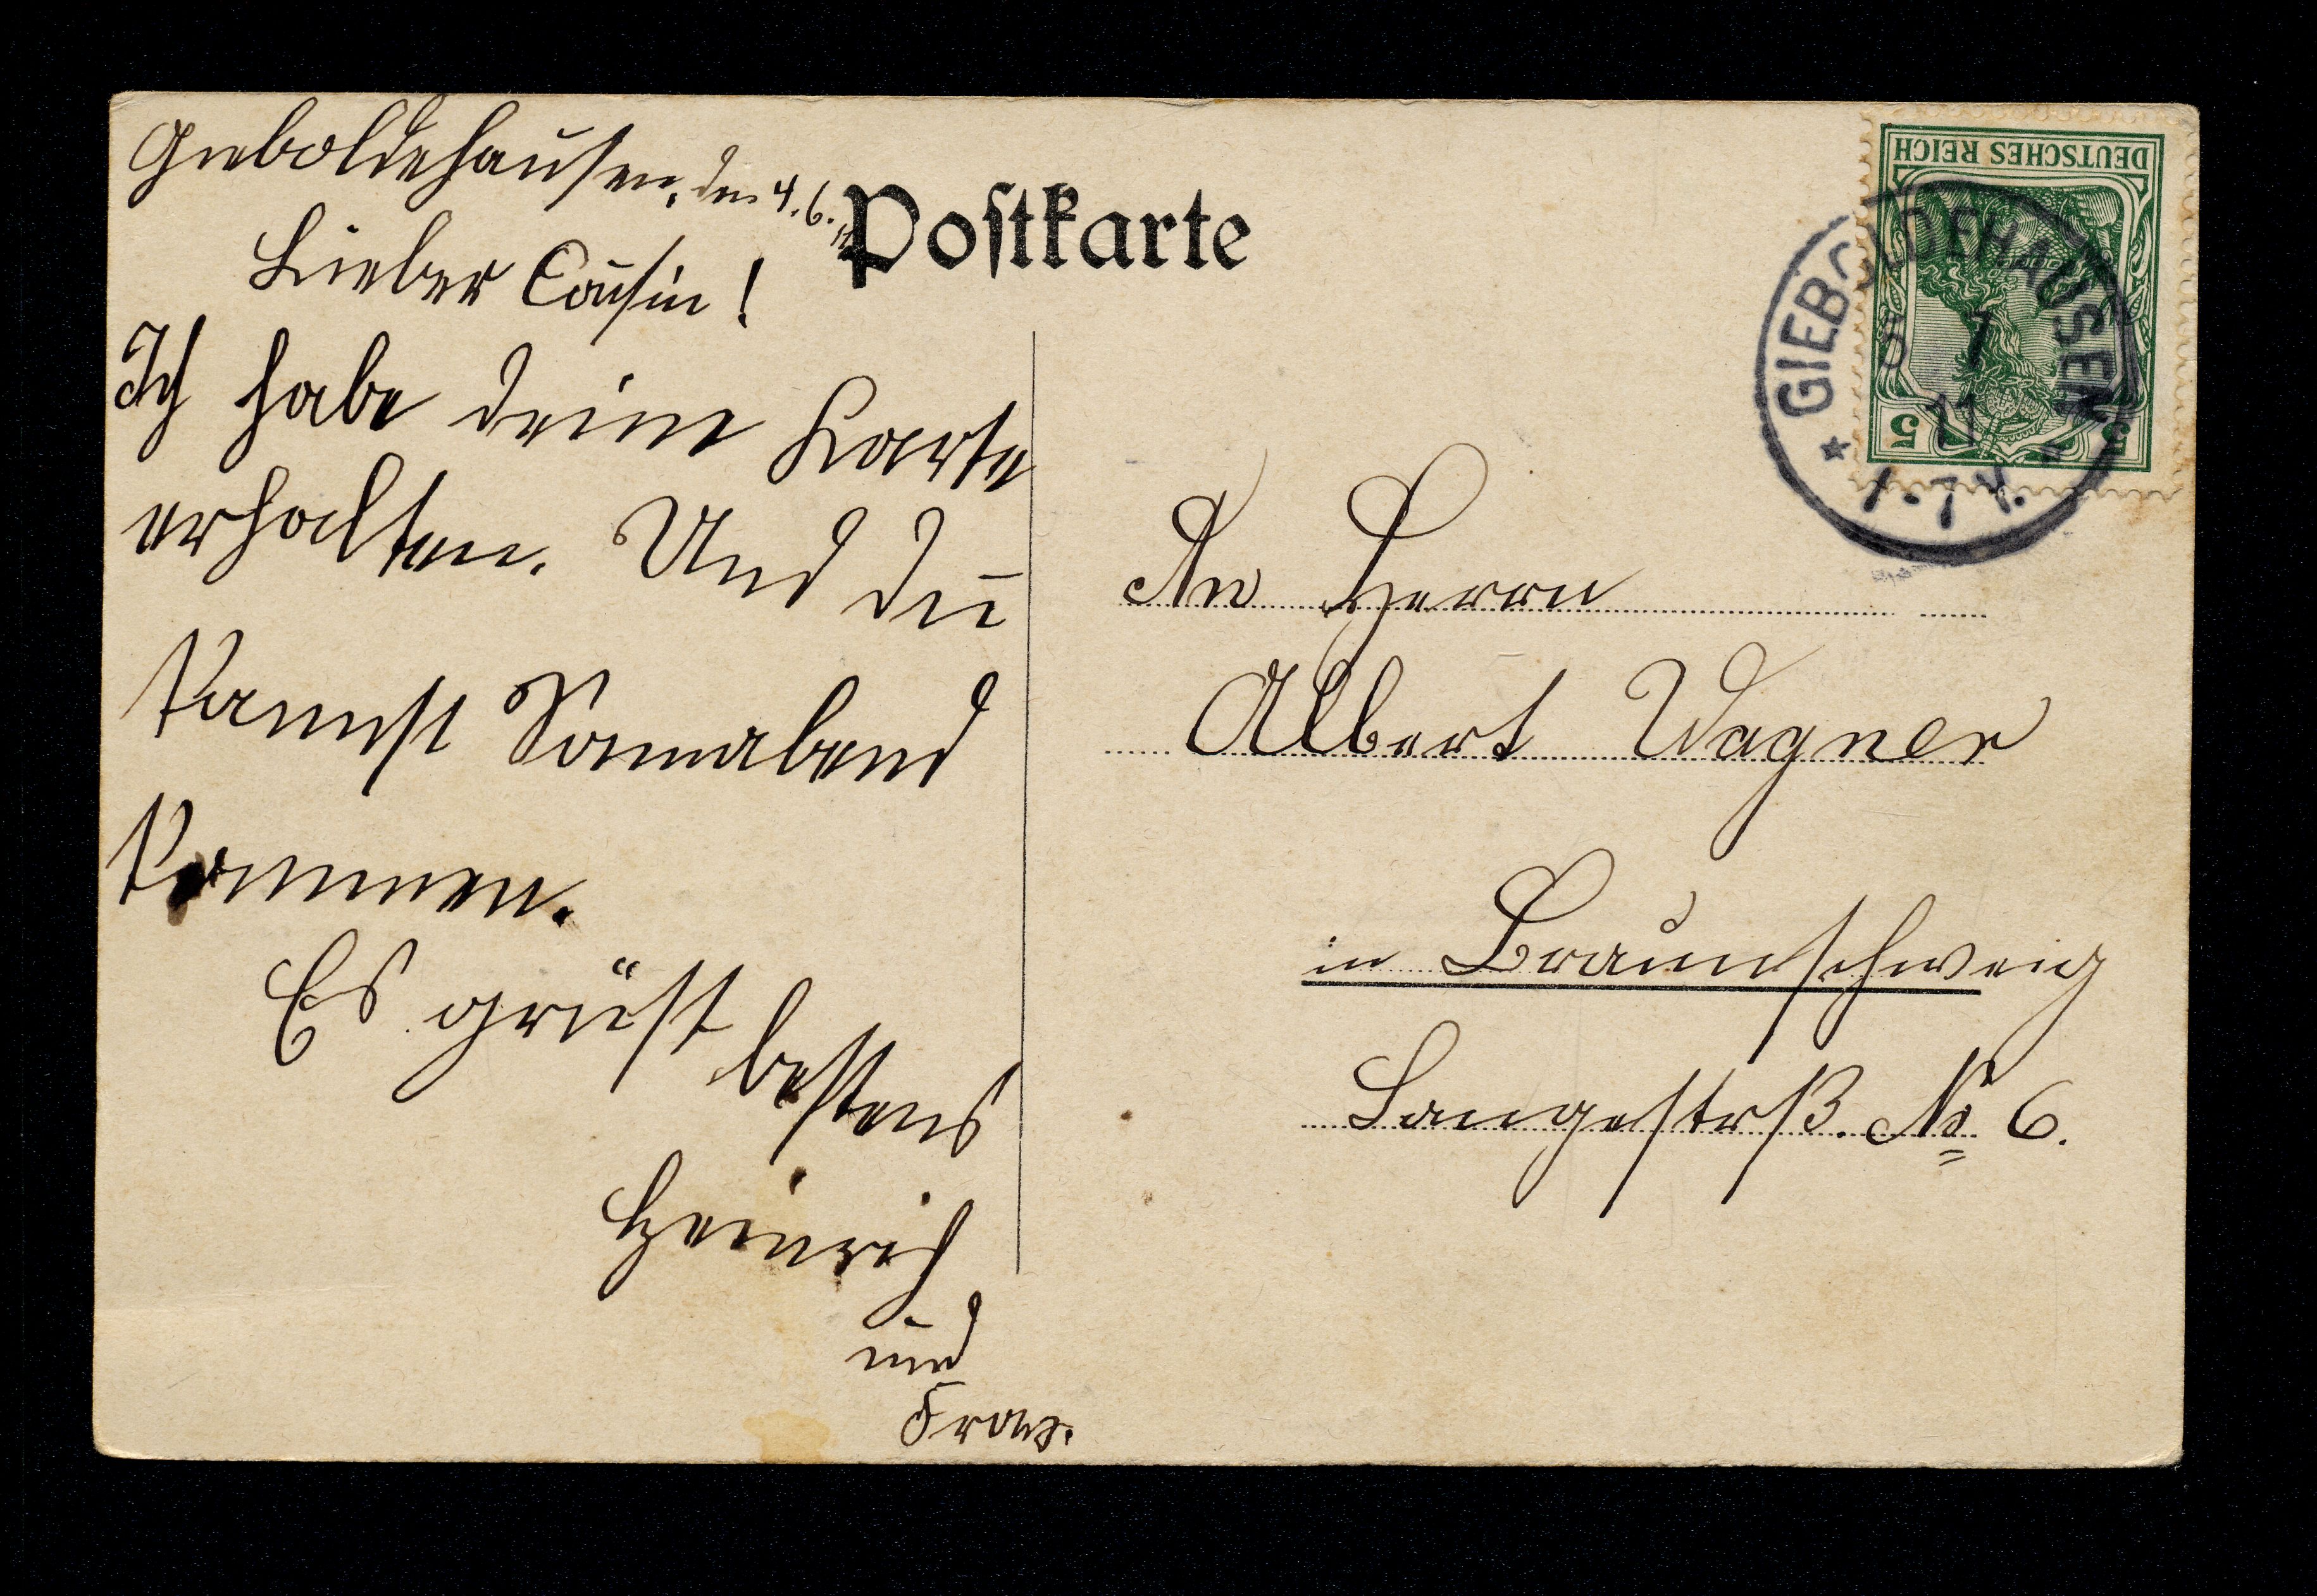 Gieboldehausen, den 4.6.11
Lieber Cousin!
Ich habe deine Karte
erhalten. Und du
kannst Sonnabend
kommen.
Es grüst
bestens
Heinrich
und
Franz.
Postkarte
DEUTSCHES REICH
5 5
* GIEBOLDEHAUSEN *
5 7
11
An Herrn
Albert Wagner
in Braunschweig
Langestrß. No 6.